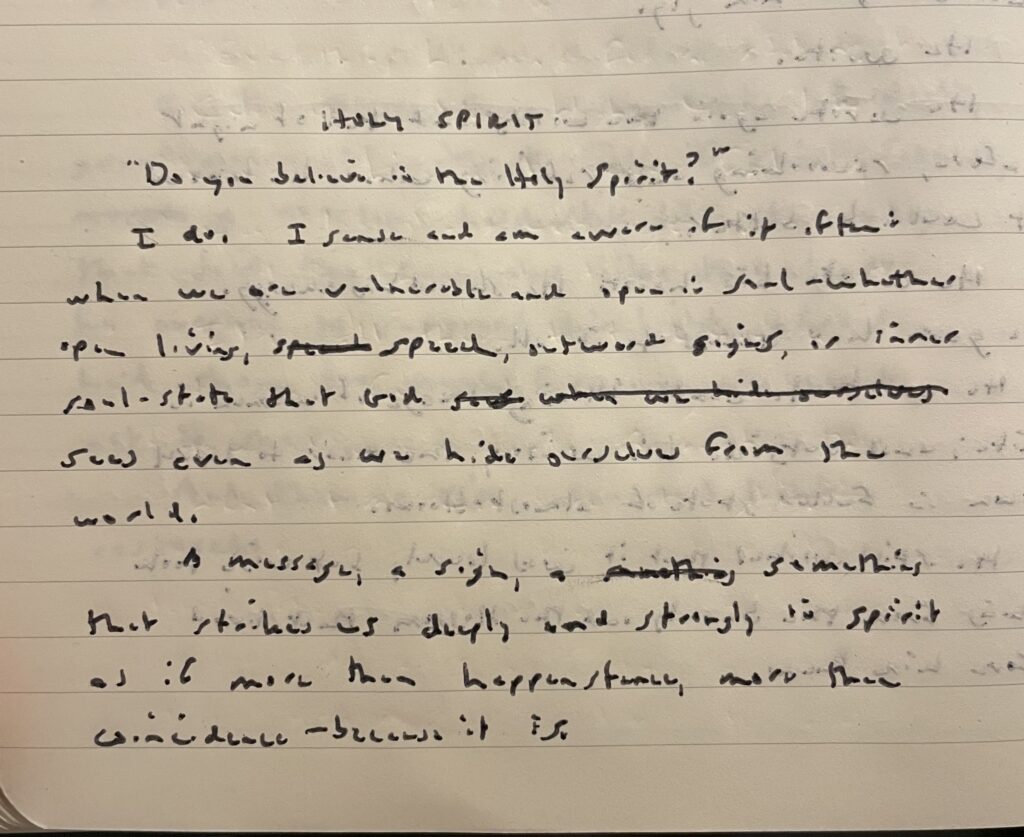 HOLY SPIRIT
"Do you believe in the Holy Spirit?"
I do. I sense and am aware of it often:
when we are vulnerable and open in soul - whether
open living, speech, outward signs, or inner
soul-state that God
sees even as we hide ourselves from the
world.
A message, a sign, a something
that strikes us deeply and strongly in spirit
as if more than happenstance, more than
coincidence - because it is.